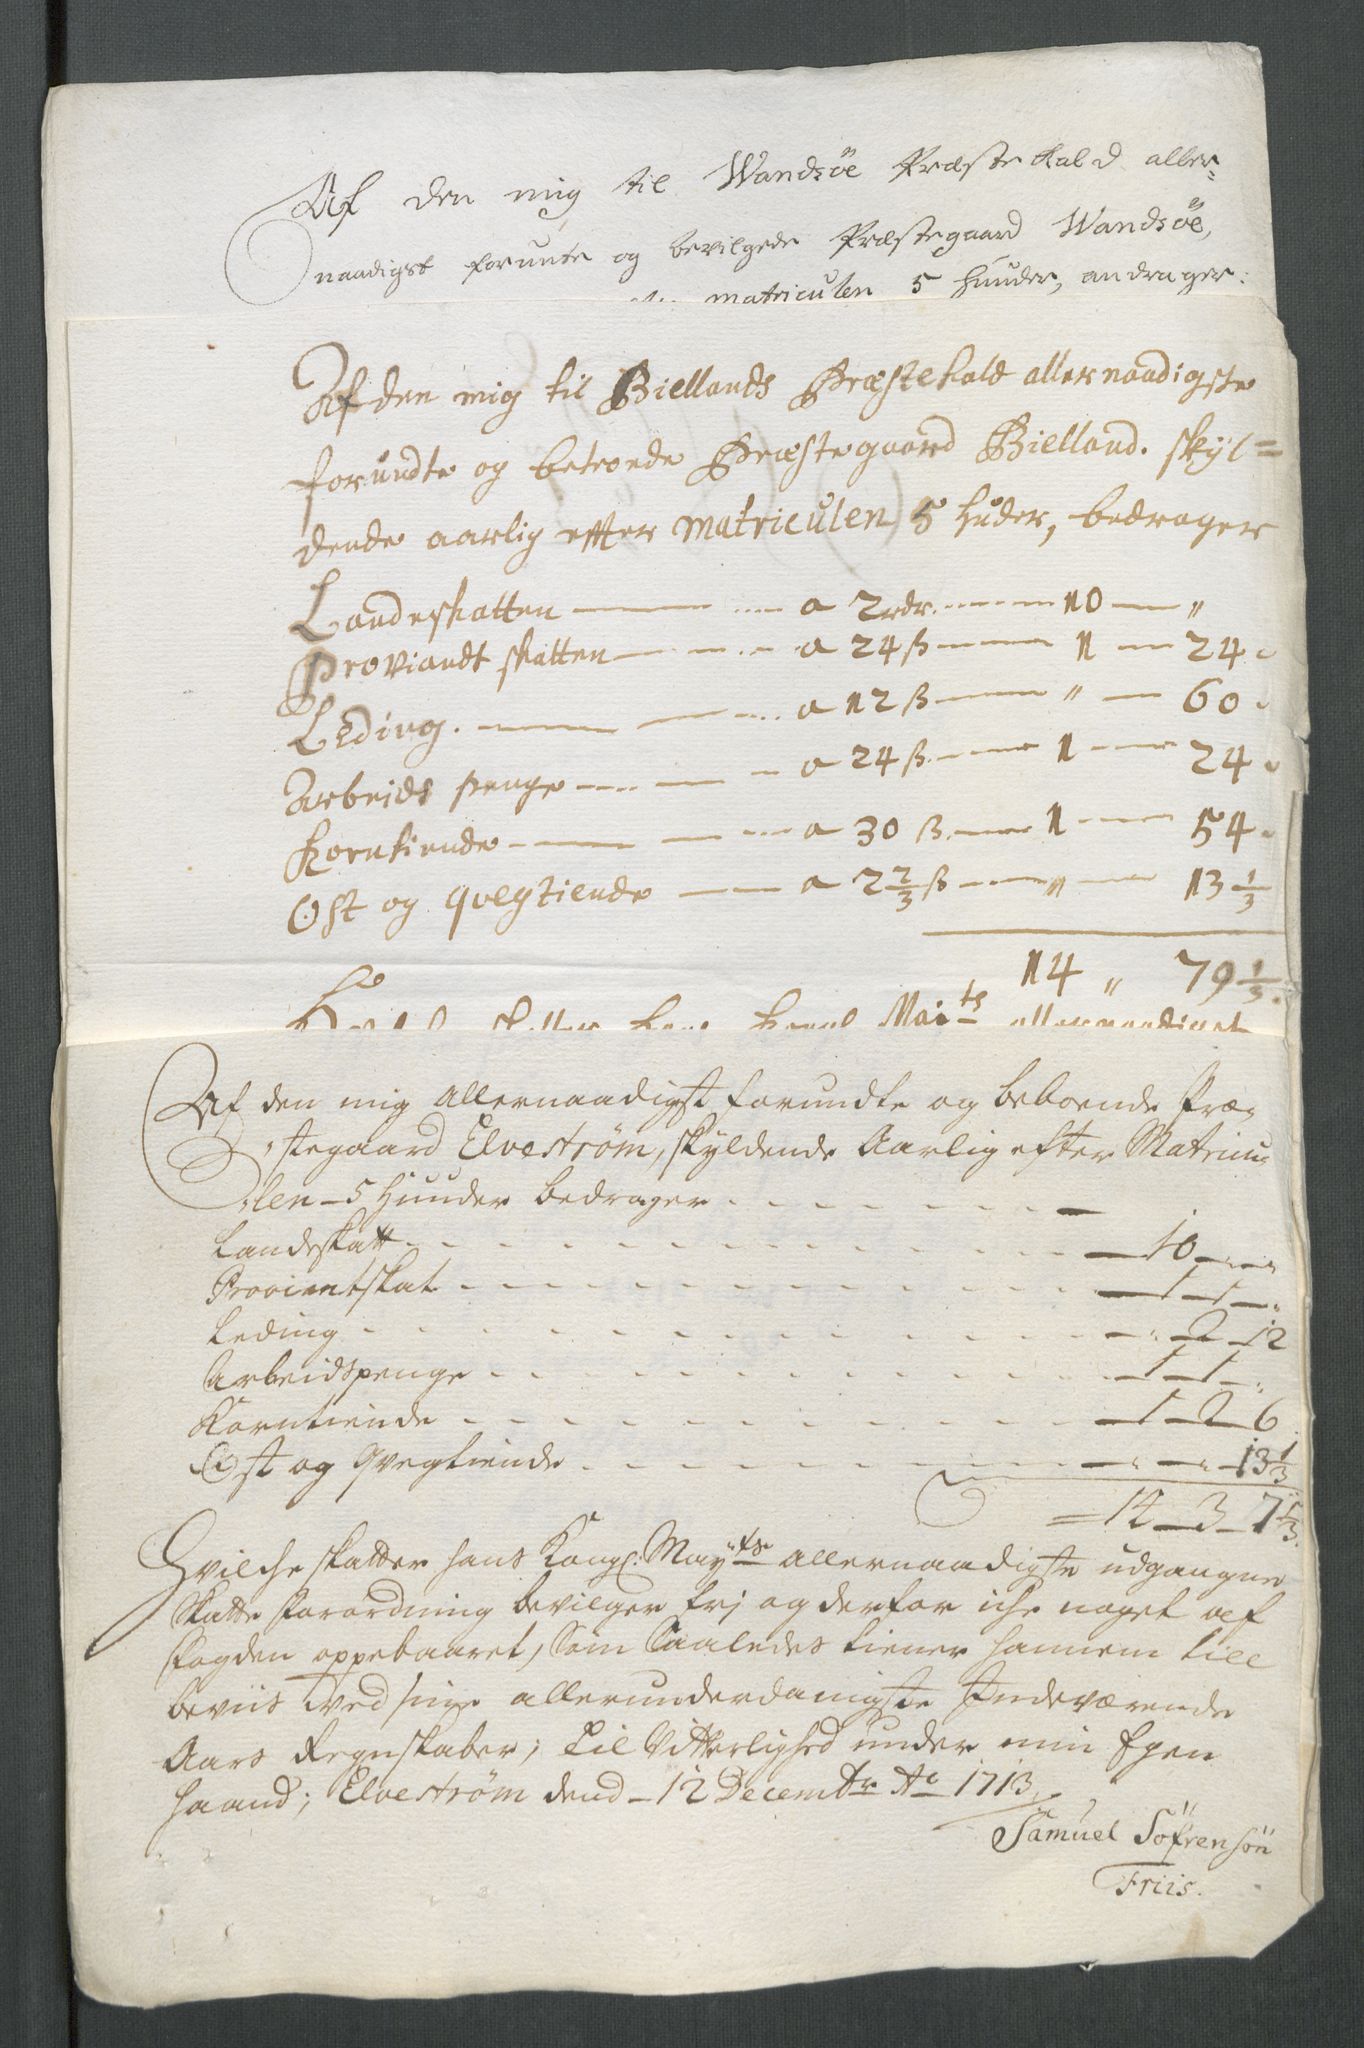 Af den mig til Wandsöe Præstekald aller¬
naadigst forunte og bevilgede Præstegaard Wandsöe,
matriculen 5 Huuder, andrager:
Af den mig til Biellands Præstekald allernaadigste
forundte og betroede Præstegaard Bielland. skÿl=
dende aarlig effter Matriculen 5 huder, bedrager
Landskatten a 2 rdr. 10 "
Proviandt skatten a 24 ß 1 24
Leding. a 12 ß " 60
Arbeids penge a 24 ß 1 24
Korntiende a 30 ß 1 54
Ost og qvegtiende a 2 2/3 ß " 13 1/3
14 " 79 1/3.
skatter hans Kongl Mai:ts allernaadigst
Af den mig allernaadigst forundte og beboende Præ¬
stegaard Elvestrøm, skyldende Aarlig efter Matricu¬
len 5 Huuder bedrager
Landskatt 10 " "
Provientskat 1 1 "
Leding " 2 12
Arbeidspenge 1 1 "
Korntiende 1 2 6
Ost og qvegtiende " " 13 1/3
= 14 3 7 1/3.
Hvilche skatter hans Kongl. Mayts allernaadigste udgangne
Skatte Forordning bevilger frj og derfor iche noget af
Fogden oppebaaret, Som Saaledes tiener hannem till
beviis ved sine allerunderdanigste Indeværende
Aars Regnskaber; Til Vitterlighed under min Egen
haand; Elvestrøm dend 12 Decembr Ao 1713
Samuel Söfrensön
Friis.